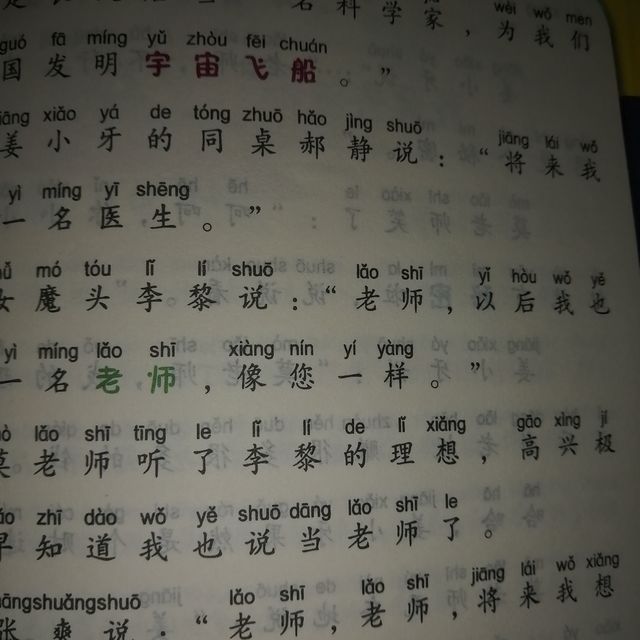 名科学家，为我们
wèi wǒ men
guó fā míng yǔ zhòu fēi chuán
国发明宇宙飞船。”
jiāng xiǎo yá de tóng zhuō hǎo jìng shuō jiāng lái wǒ
姜小牙的同桌郝静说：“将来我
yì míng yī shēng
一名医生。”
mó tóu lǐ lí shuō lǎo shī yǐ hòu wǒ yě
女魔头李黎说：“老师，以后我也
yì míng lǎo shī xiàng nín yí yàng
一名老师，像您一样。”
lǎo shī tīng le lǐ lí de lǐ xiǎng gāo xìng jí
莫老师听了李黎的理想，高兴极
zhī dào wǒ yě shuō dāng lǎo shī le
早知道我也说当老师了。
shuǎngshuō lǎo shī lǎo shī jiāng lái wǒ xiǎng
张爽说：“老师，老师，将来我想